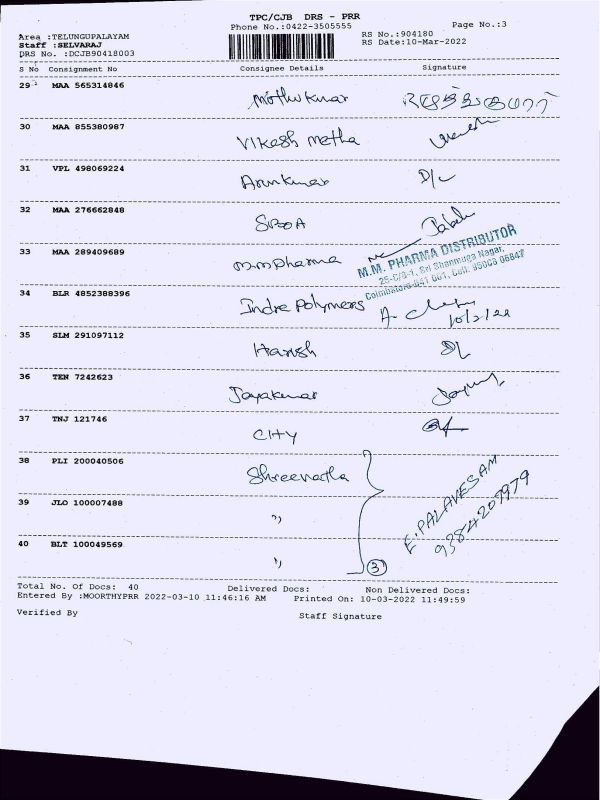 TPC/CJB DRS - PRR
Phone No.:0422-3505555 Page No.:3
Area :TELUNGUPALAYAM RS No.:904180
Staff :SELVARAJ RS Date:10-Mar-2022
DRS No. :DCJB90418003
S No Consignment No Consignee Details Signature
29 MAA 565314846 Mothukumar
30 MAA 855380987 Vikash metha
31 VPL 498069224 Arunkumar D/L
32 MAA 276662848
33 MAA 289409689 m.m pharma
M.M. PHARMA DISTRIBUTOR
25-C/3-1, Sri Shanmuga Nagar,
Coimbatore-641 001, Cell: 95003 06847
34 BLR 4852388396 Indre polymers
35 SLM 291097112 Harish D/L
36 TEN 7242623 Jayakumar
37 TNJ 121746 CITY
38 PLI 200040506 Shreenatha
39 JLO 100007488 "
E. PALAVESAM
9384207979
40 BLT 100049569 " 3
Total No. Of Docs: 40 Delivered Docs: Non Delivered Docs:
Entered By :MOORTHYPRR 2022-03-10 11:46:16 AM Printed On: 10-03-2022 11:49:59
Verified By Staff Signature